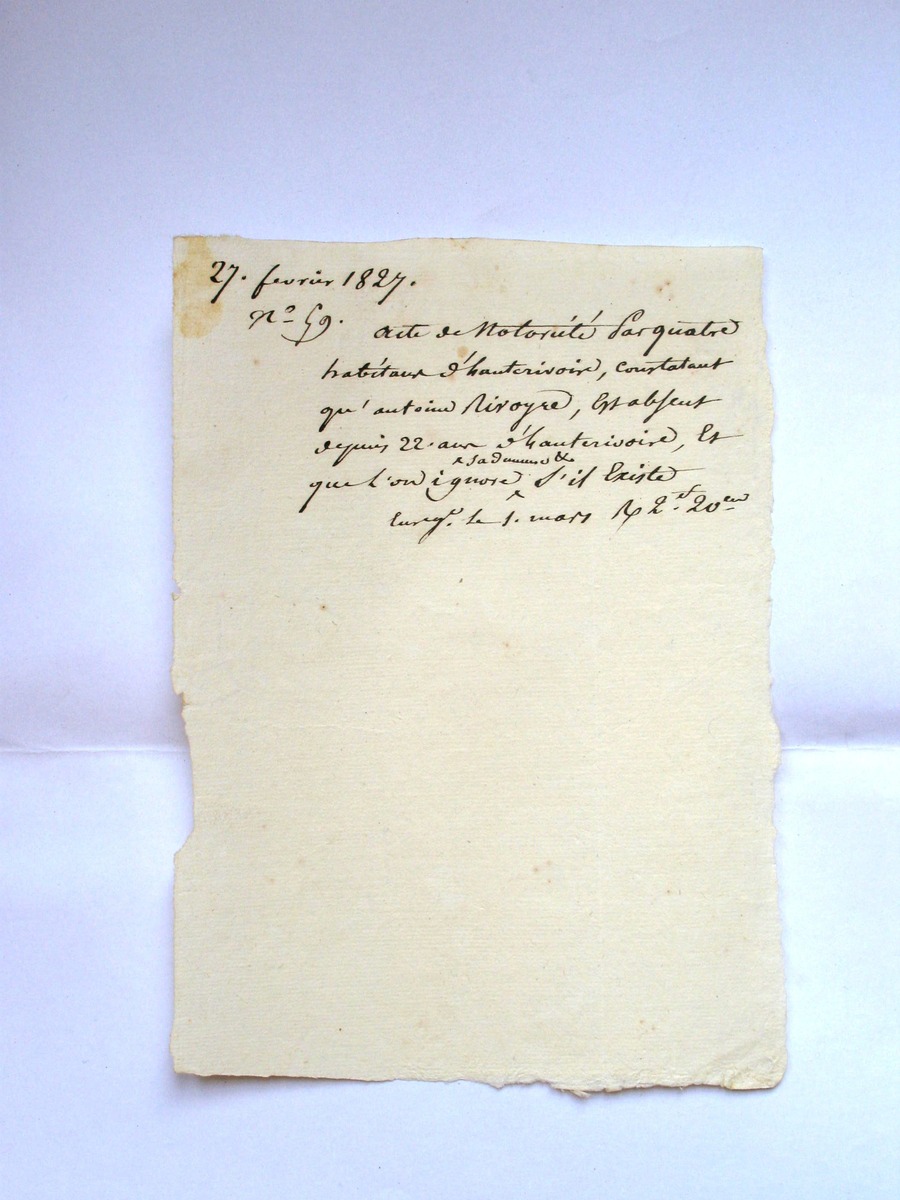 27. fevrier 1827.
n° 59.
acte de Notorieté Par quatre
habitans d'hauterivoire, constatant
qu'antoine Rivoyre, Est absent
depuis 22. ans d'hauterivoire, Et
sa demeure &
que l'on ignore s'il Existe
Enreg.ᵗ le 1. mars R 2.ᶠ 20.ᶜᵉⁿ